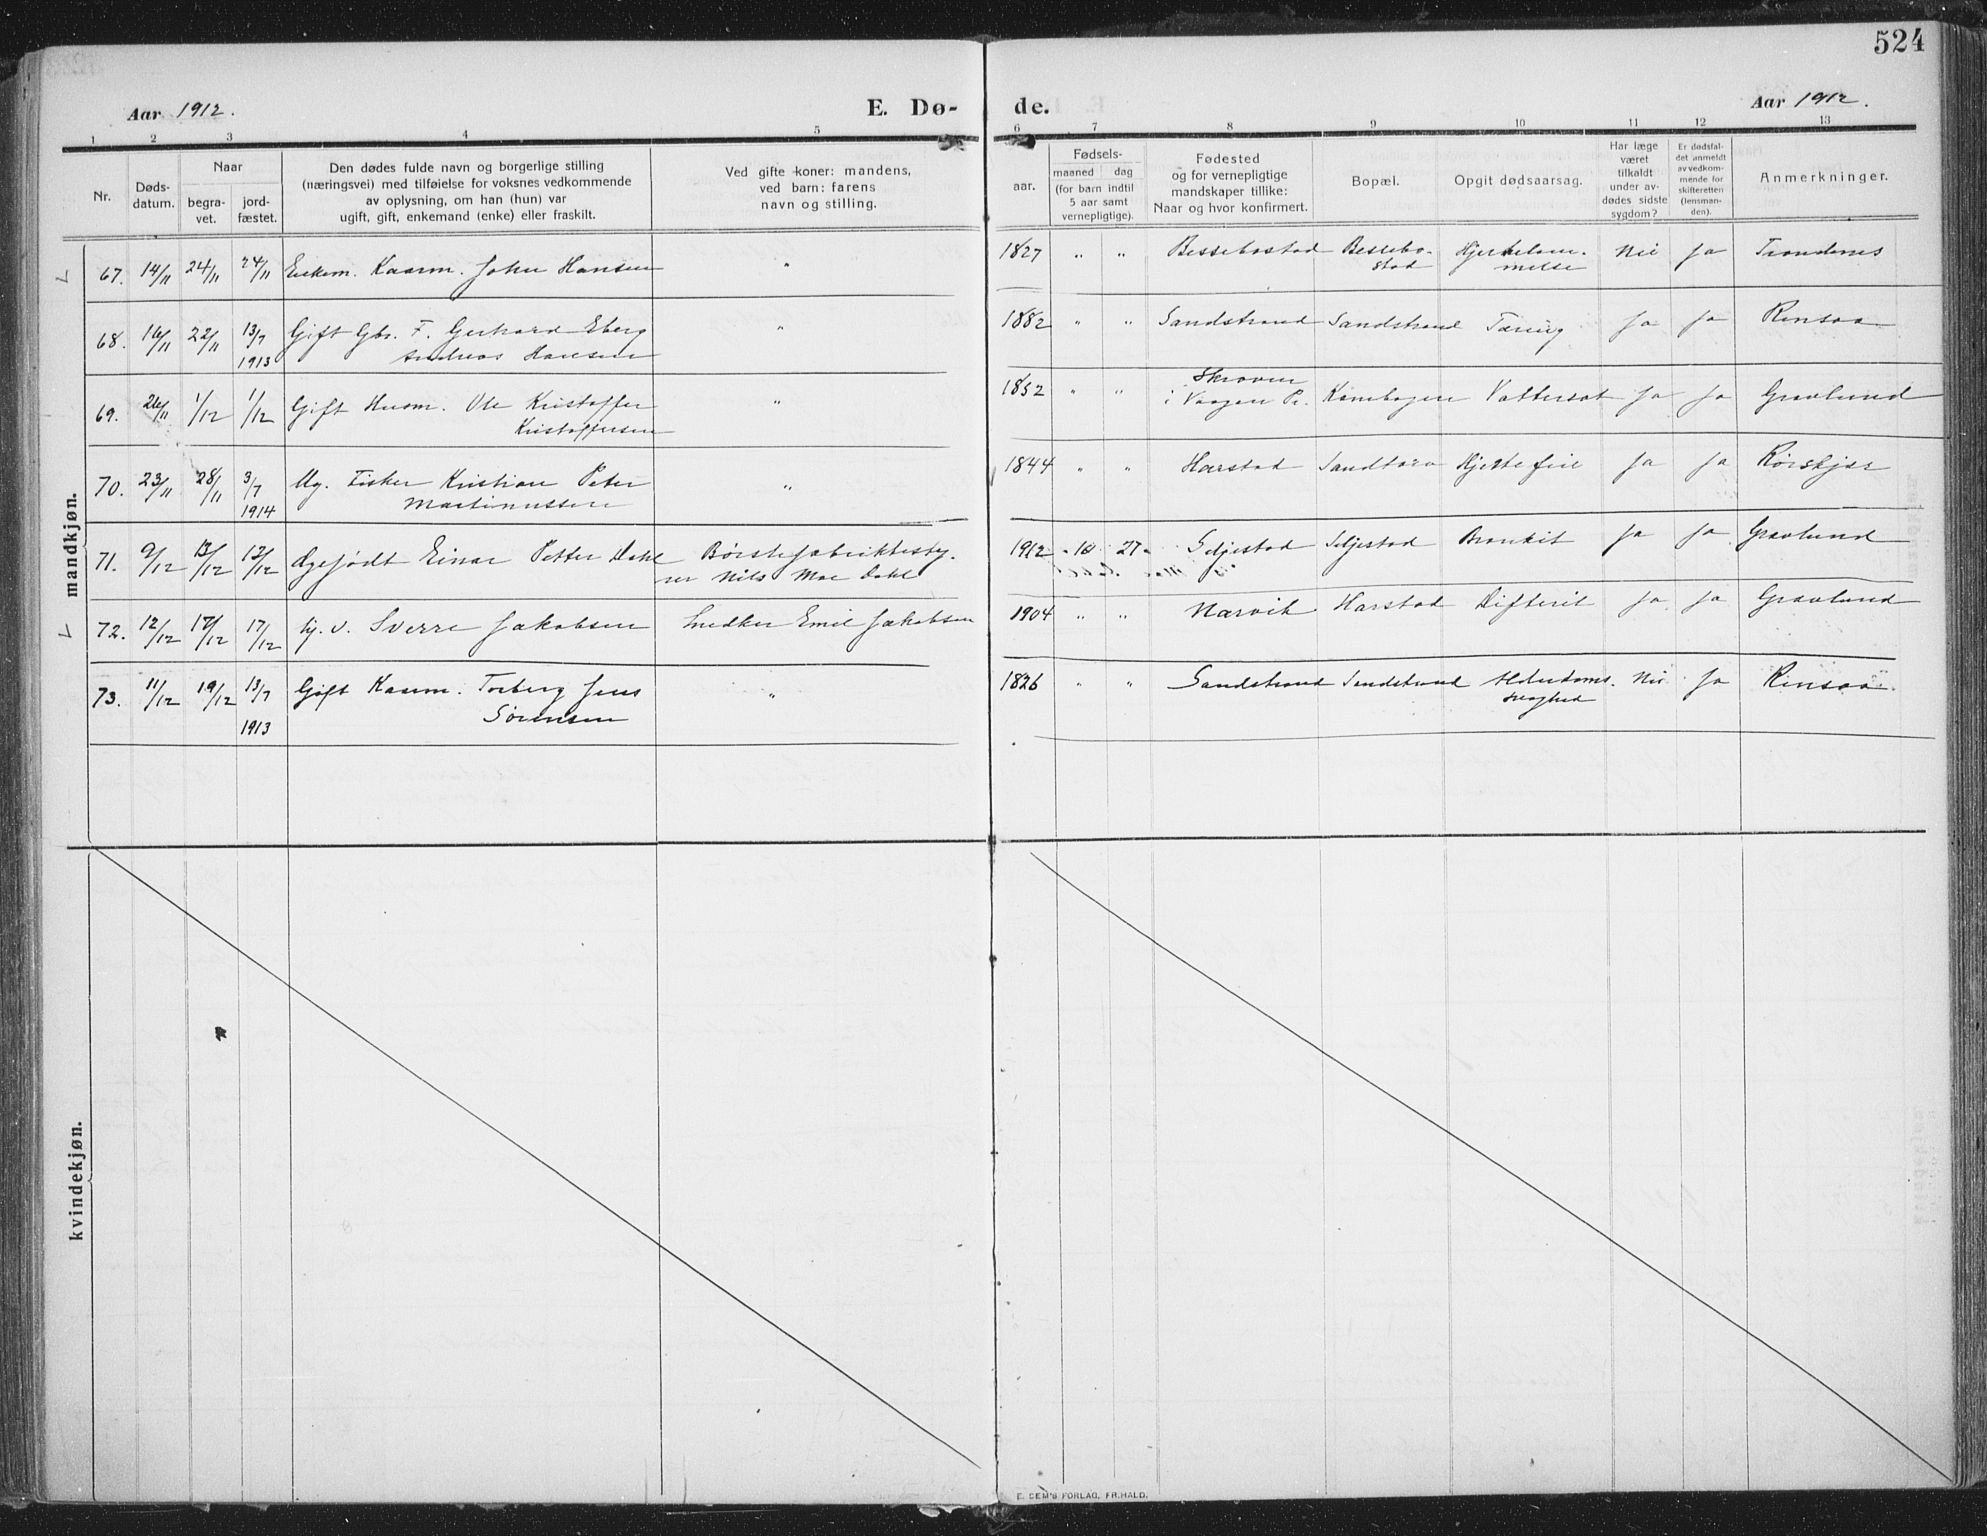 524
Aar 1912.
E. Dø-
de.
Aar 1912.
1 2 3 4 5
6 7 8 9 10 11 12 13
Nr.
Døds-
datum.
Naar
begra-
vet.
jord-
fæstet.
Den dødes fulde navn og borgerlige stilling
(næringsvei) med tilføielse for voksnes vedkommende
av oplysning, om han (hun) var
ugift, gift, enkemand (enke) eller fraskilt.
Ved gifte koner: mandens,
ved barn: farens
navn og stilling.
aar.
Fødsels-
maaned dag
(for barn indtil
5 aar samt
vernepligtige).
Fødested
og for vernepligtige
mandskaper tillike:
Naar og hvor konfirmert.
Bopæl.
Opgit dødsaarsag.
Har læge
været
tilkaldt
under av-
dødes sidste
sygdom?
Er dødsfal-
det anmeldt
av vedkom-
mende for
skifteretten
(lensman-
den).
Anmerkninger.
mandkjøn.
67. 14/11 24/11 24/11 Enkem. Kaarm. John Hansen " 1827 " " Bessebostad Bessebo-
stad Hjertelam-
melse Nei Ja Trondenes
68. 16/11 22/11 13/7
1913 Gift Gbr. F. Gerhard Eberg
Andreas Hansen " 1882 " " Sandstrand Sandstrand Tæring Ja Ja Rensaa
69. 26/11 1/12 1/12 Gift Husm. Ole Kristoffer
Kristoffersen " 1852 " " Skroven
i Vaagan Pr. Kanebogen Vattersot Ja Ja Gravlund
70. 23/11 28/11 3/7
1914 Ug. Fisker Kristian Peter
Martinussen " 1844 " " Harstad Sandtorv Hjertefeil Ja Ja Rørskjær
71. 9/12 13/12 13/12 Ægefødt Einar Petter Dahl Børstefabrikbesty-
rer Nils Moe Dahl 1912 - 10 27 - Seljestad Seljestad Bronkit Ja Ja Gravlund
72. 12/12 17/12 17/12 Sverre Jakobsen Snedker Emil Jakobsen 1904 " " Narvik Harstad Difterit Ja Ja Gravlund
73. 11/12 19/12 13/7
1913 Gift Kaarm. Torberg Jens
Sørensen " 1826 " " Sandstrand Sandstrand Alderdoms-
svaghed Nei Ja Rensaa
kvindekjøn.
E. SEM'S FORLAG, FR.HALD.